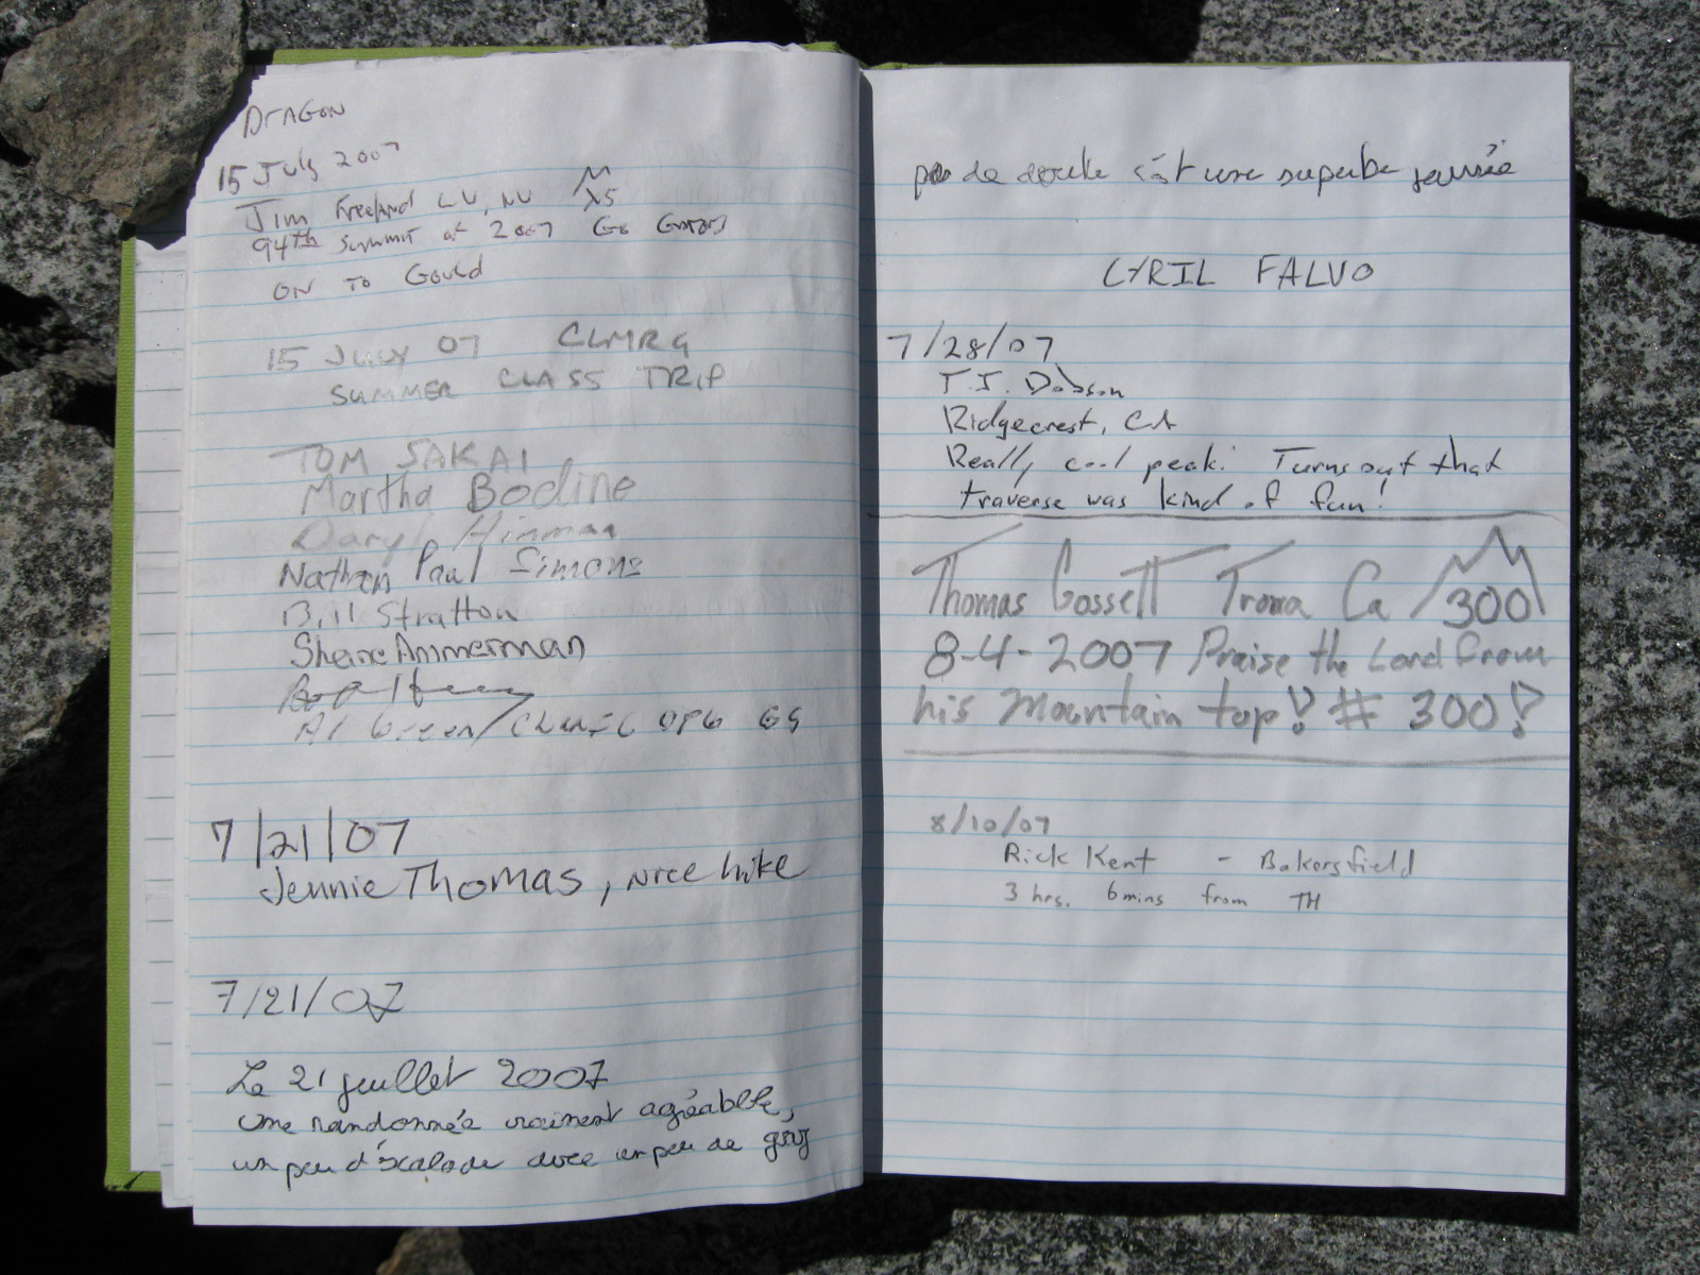 DrAGON
15 July 2007
Jim Freeland LV, NV X5
94th summit of 2007 Go
ON TO GOULD
15 JULY 07 CLMRG
SUMMER CLASS TRIP
TOM SAKAI
Martha Bodine
Daryl Hinman
Nathan Paul Simons
Bill Stratton
Shane Ammerman
Al Green/
7/21/07
Jennie Thomas, nice hike
7/21/07
Le 21 juillet 2007
une randonnée vraiment agréable,
un peu d'escalade avec un peu de
de doute c'ést une superbe journée
CYRIL FALVO
7/28/07
T.J. Dobson
Ridgecrest, CA
Really cool peak. Turns out that
traverse was kind of fun!
Thomas Gossett Trona Ca 300
8-4-2007 Praise the Lord from
his Mountain top! # 300!
8/10/07
Rick Kent - Bakersfield
3 hrs. 6 mins from TH